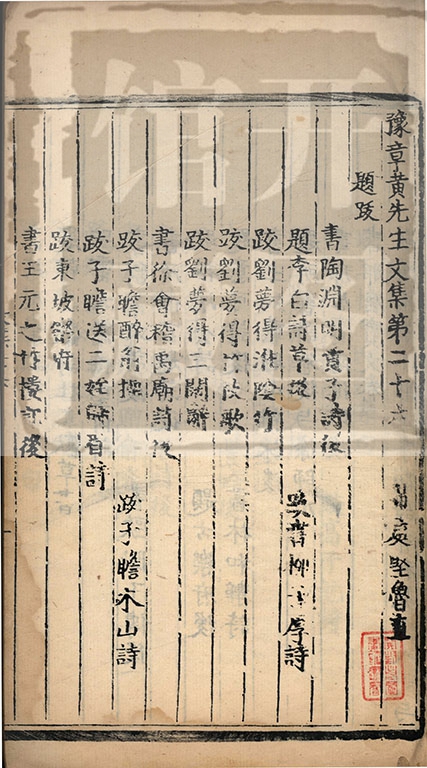 豫章黃先生文集第二十六 黃庭堅魯直
題跋
書陶淵明責子詩後
題李白詩草後 跋書柳子厚詩
跋劉夢得淮陰行
跋劉夢得竹枝歌
跋劉夢得三閣辭
書徐會稽禹廟詩後
跋子瞻醉翁操 跋子瞻木山詩
跋子瞻送二姪歸眉詩
跋東坡樂府
書王元之竹樓記後